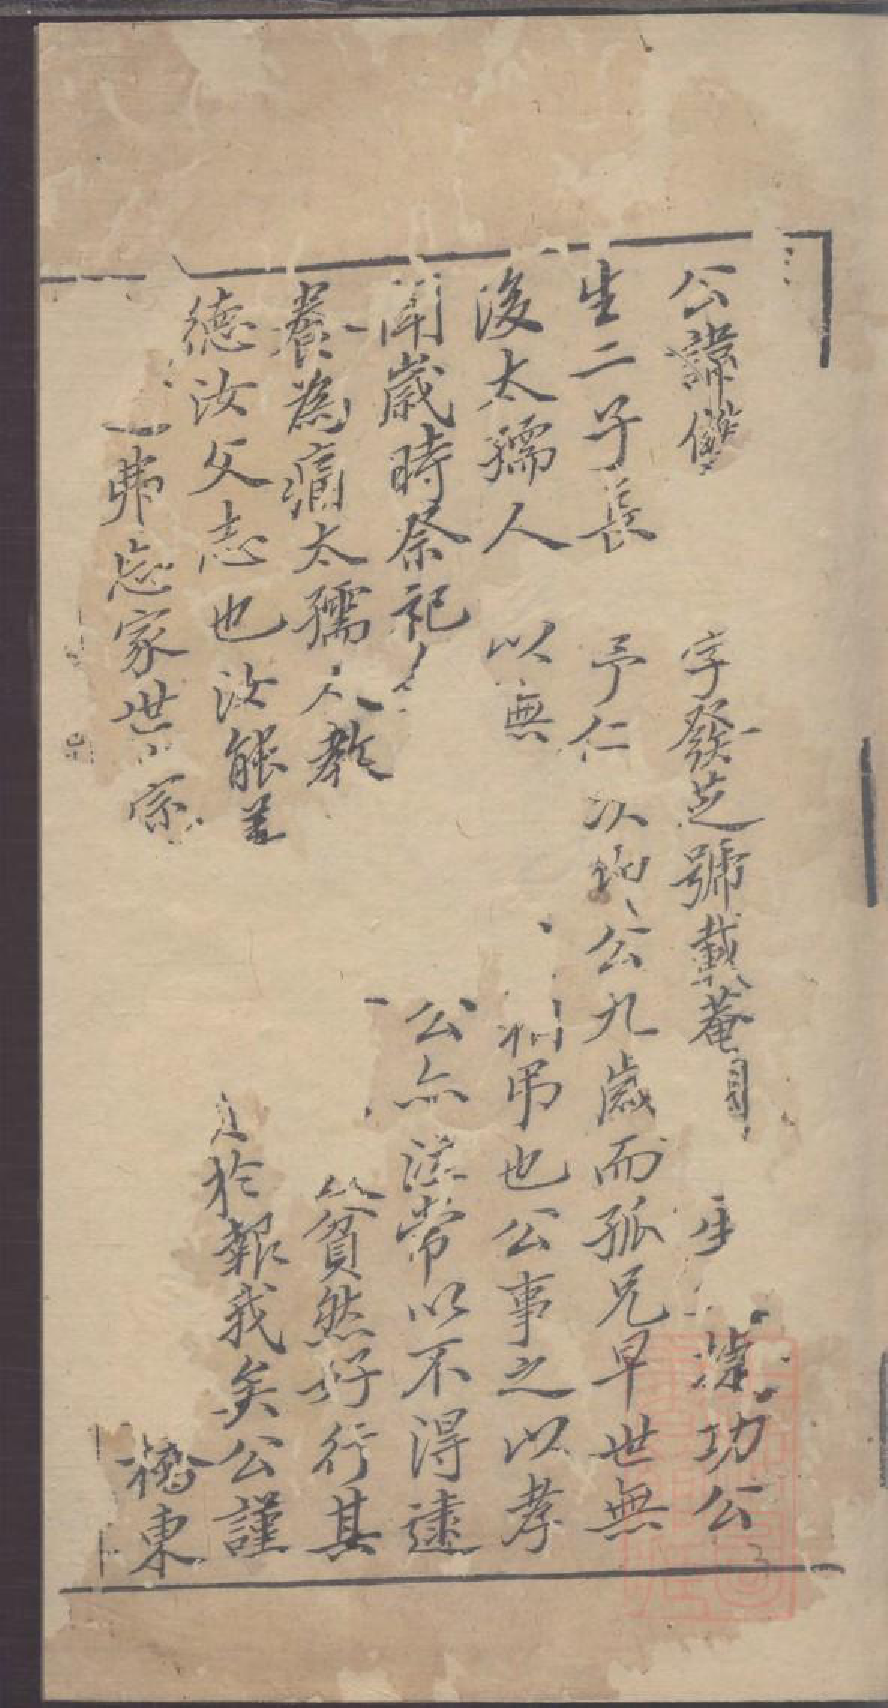 公諱 字發芝號載菴 功公
生二子長 予仁次 公九歲而孤兄早世無
後太孺人 以無 吊也公事之以孝
聞歲時祭祀 公亦 常以不得逮
養為痛太孺人教 貧然好行其
德汝父志也汝能 於報我矣公謹
弗忘家世 宗 橋東